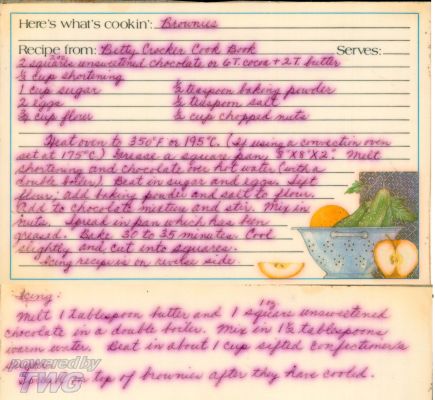 Here's what's cookin': Brownies
Recipe from: Betty Crocker Cook Book Serves:
2 squares unsweetened chocolate or 6 T. cocoa + 2 T. butter
cup shortening
1 cup sugar
teaspoon baking powder
2 eggs
teaspoon salt
cup flour
cup chopped nuts
Heat oven to 350°F or 195°C. (If using a convection oven
set at 175°C) Grease a square pan, 8"X8"X2". Melt
shortening and chocolate over hot water (with a
double boiler). Beat in sugar and eggs. Sift
flour, add baking powder and salt to flour.
Add to chocolate mixture and stir. Mix in
nuts. Spread in pan which has been
greased. Bake 30 to 35 minutes. Cool
slightly and cut into squares.
Icing recipe is on reverse side.
Icing:
Melt 1 tablespoon butter and 1 square unsweetened
chocolate in a double boiler. Mix in 1½ tablespoons
warm water. Beat in about 1 cup sifted confectioner's
Spread on top of brownies after they have cooled.
powered by
TWG